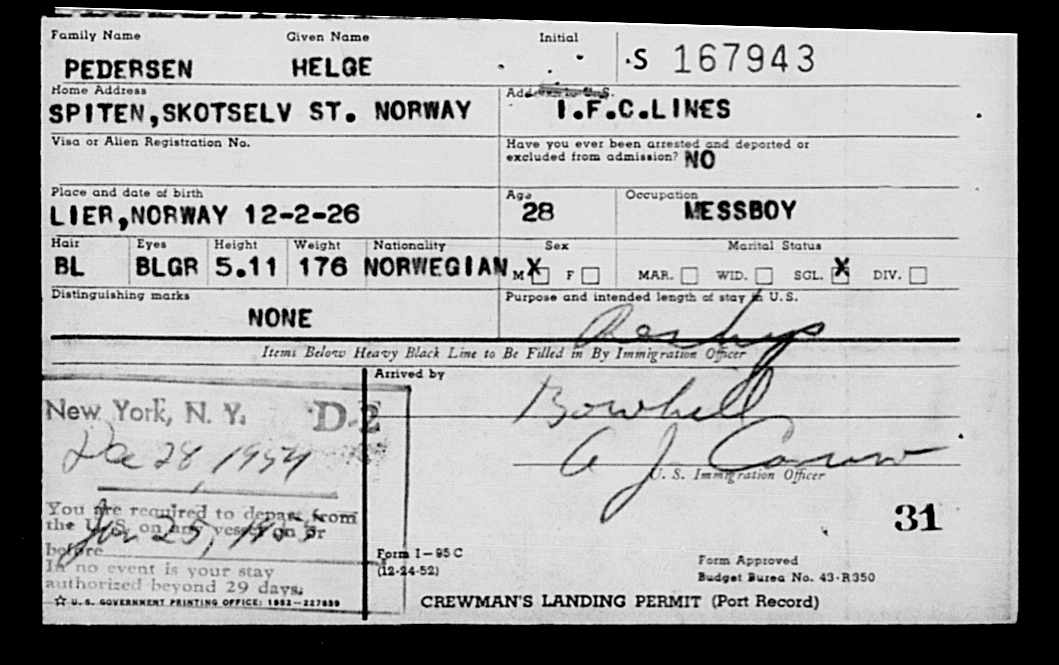 Family Name Given Name Initial
PEDERSEN HELGE S 167943
Home Address
SPITEN,SKOTSELV ST. NORWAY I.F.C.LINES
Visa or Alien Registration No. Have you ever been arrested and deported or
excluded from admission? NO
Place and date of birth Age Occupation
LIER,NORWAY 12-2-26 28 MESSBOY
Hair Eyes Height Weight Nationality Sex Marital Status
BL BLGR 5.11 176 NORWEGIAN M X F MAR. WID. SGL. X DIV.
Distinguishing marks Purpose and intended length of stay in U.S.
NONE
Items Below Heavy Black Line to Be Filled in By Immigration Officer
Arrived by
New York, N. Y. D-2 Bowhill
Dec 28, 1954 A J
U. S. Immigration Officer
You are required to depart from
the U.S. on any vessel on or
Jan 25, 1955
before
31
In no event is your stay
authorized beyond 29 days.
☆ U. S. GOVERNMENT PRINTING OFFICE: 1952-227939
Form I-95 C
(12-24-52)
Form Approved
Budget Burea No. 43-R350
CREWMAN'S LANDING PERMIT (Port Record)